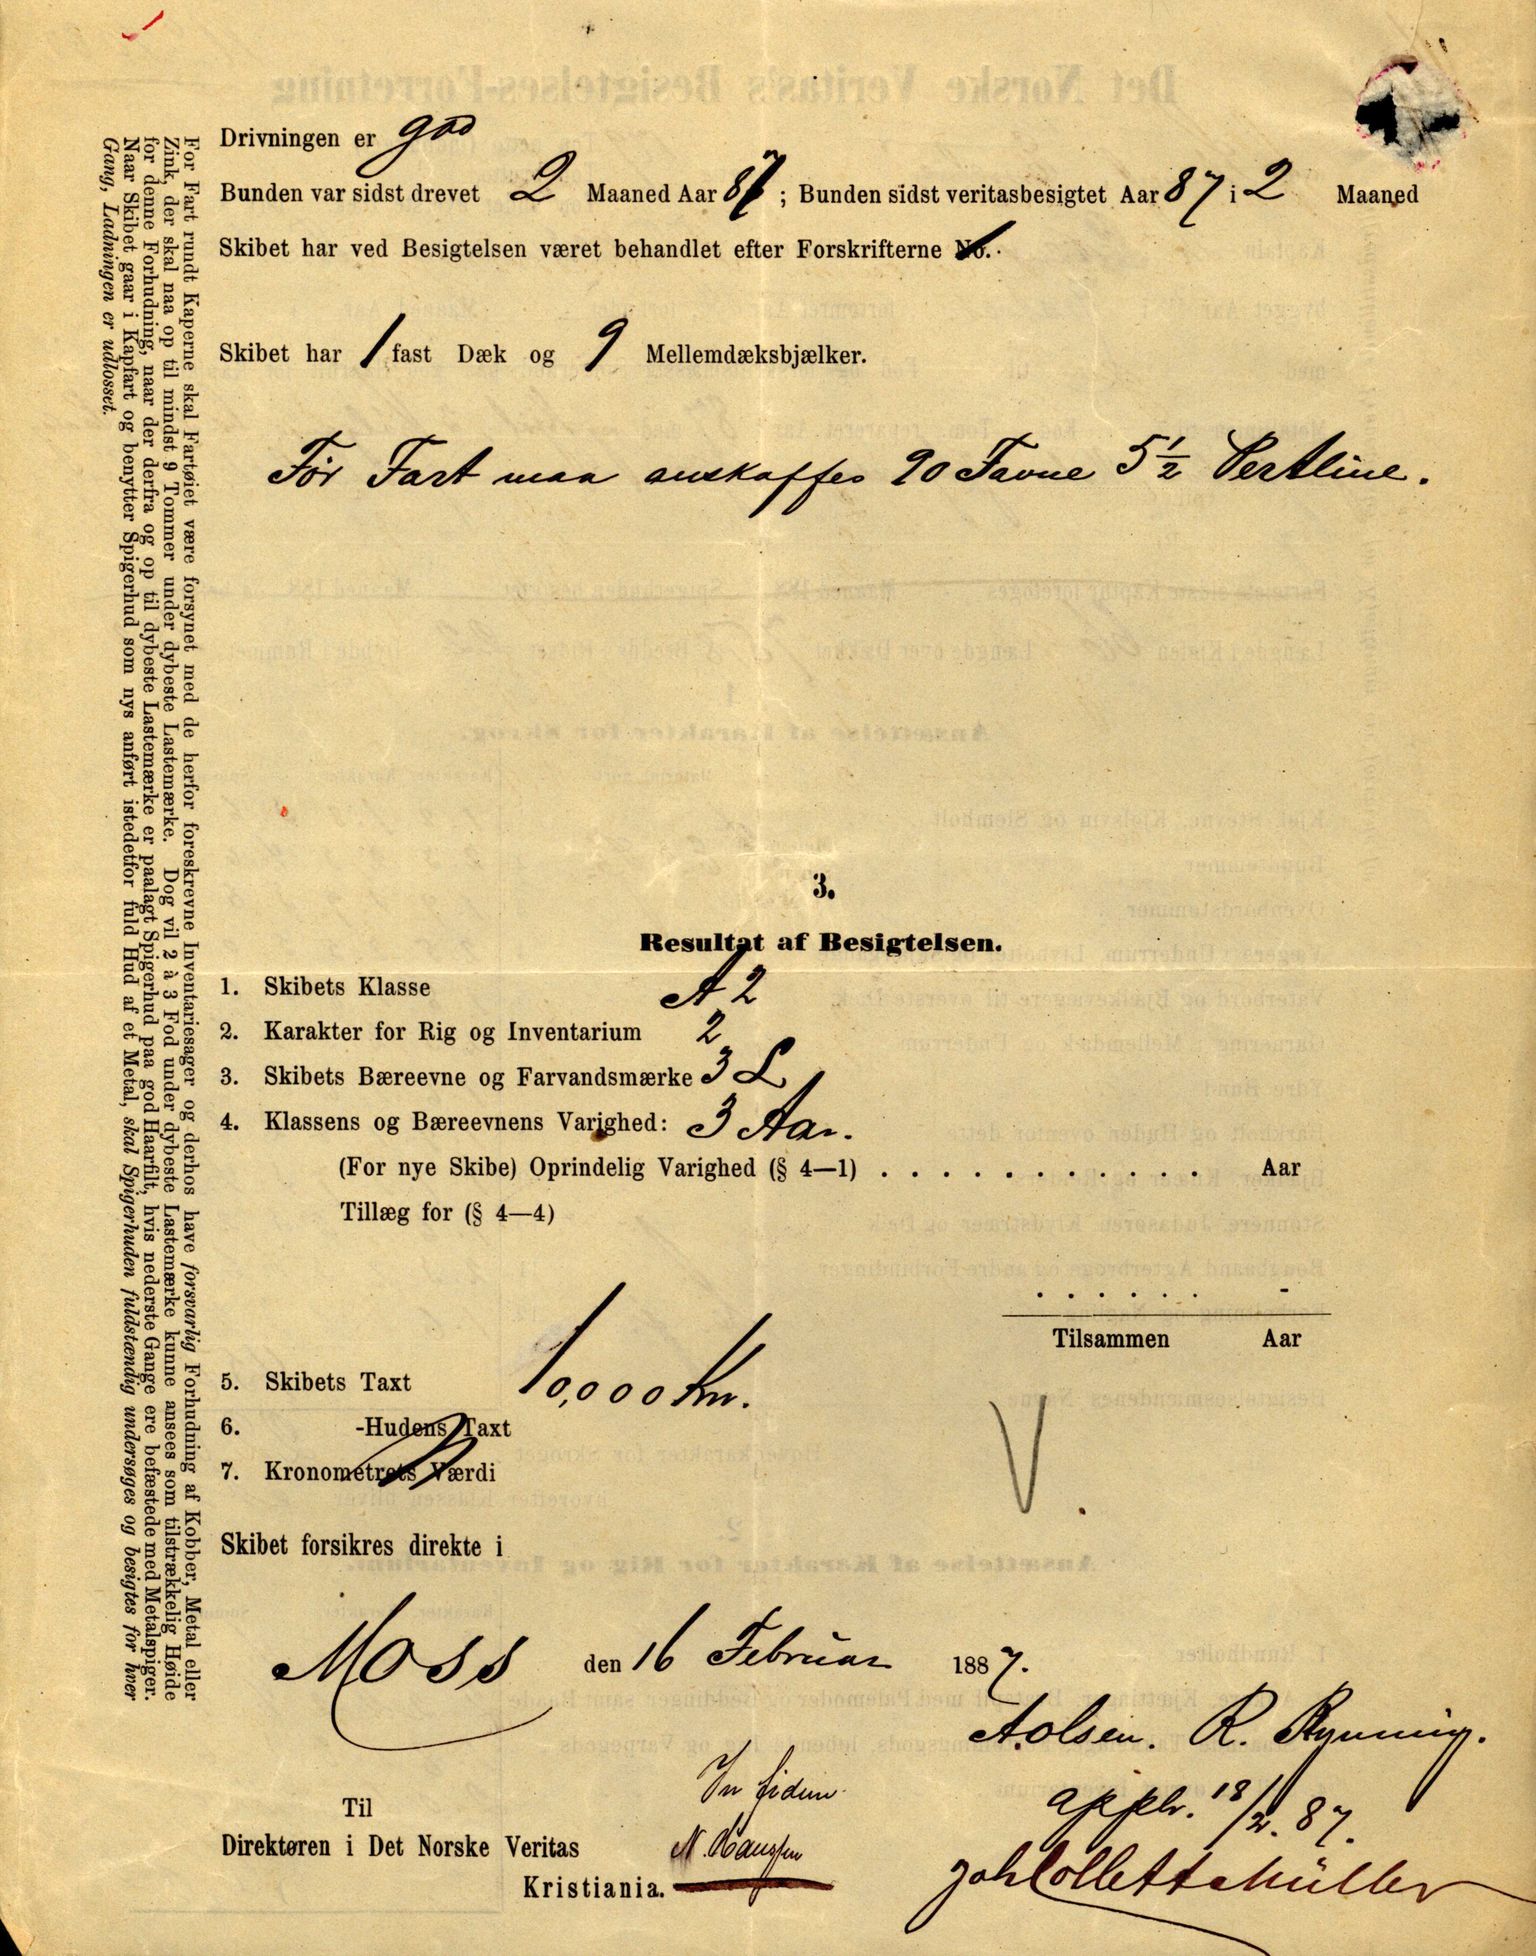 Drivningen er god
Bunden var sidst drevet 2 Maaned Aar 87; Bunden sidst veritasbesigtet Aar 87 i 2 Maaned
Skibet har ved Besigtelsen været behandlet efter Forskrifterne No.
Skibet har 1 fast Dæk og 9 Mellemdæksbjælker.
Før Fart maa anskaffes 90 Favne 5 1/2 Pertline.
3.
Resultat af Besigtelsen.
1. Skibets Klasse A 2
2. Karakter for Rig og Inventarium 2
3. Skibets Bæreevne og Farvandsmærke 3 L
4. Klassens og Bæreevnens Varighed: 3 Aar.
(For nye Skibe) Oprindelig Varighed (§ 4—1) . . . . . . . . . . . Aar
Tillæg for (§ 4—4)
. . . . . . -
Tilsammen Aar
5. Skibets Taxt 10,000 Kr.
6. -Hudens Taxt
7. Kronometrets Værdi
V
Skibet forsikres direkte i
Moss den 16 Februar 1887.
A. Olsen. R. Rynning.
In fidem
appb. 18/2. 87.
Til
Direktøren i Det Norske Veritas
N. Hanssen
Kristiania.
Joh Collett Müller
For Fart rundt Kaperne skal Fartøiet være forsynet med de herfor foreskrevne Inventariesager og derhos have forsvarlig Forhudning af Kobber, Metal eller
Zink, der skal naa op til mindst 9 Tommer under dybeste Lastemærke. Dog vil 2 à 3 Fod under dybeste Lastemærke kunne ansees som tilstrækkelig Høide
for denne Forhudning, naar der derfra og op til dybeste Lastemærke er paalagt Spigerhud paa god Haarfilt, hvis nederste Gange ere befæstede med Metalspiger.
Naar Skibet gaar i Kapfart og benytter Spigerhud som nys anført istedetfor fuld Hud af et Metal, skal Spigerhuden fuldstændig undersøges og besigtes for hver
Gang, Ladningen er udlosset.